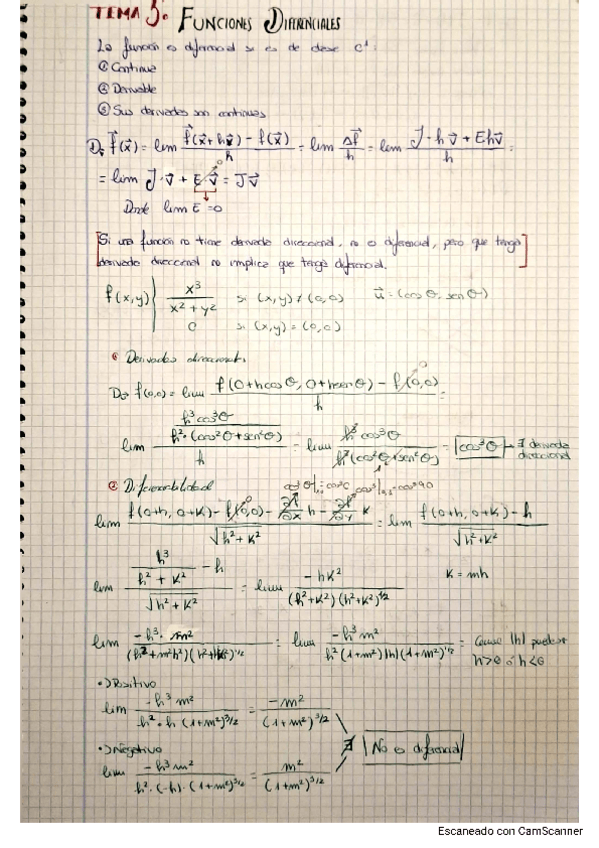 TEMA 5: FUNCIONES DIFERENCIALES
La función es diferencial si es de clase C¹:
① Continua
② Derivable
③ Sus derivadas son continuas
D. f⃗(x⃗) = lim (f⃗(x⃗ + hv⃗) - f(x⃗))/h = lim Δf⃗/h = lim (J·h v⃗ + Ehv⃗)/h =
= lim J·v⃗ + E·v⃗ = Jv⃗
Donde lim E = 0
Si una función no tiene derivada direccional, no es diferencial, pero que tenga
derivada direccional no implica que tenga diferencial.
f(x,y) { x³/(x² + y²) si (x,y) ≠ (0,0) u⃗ = (cos θ, sen θ)
0 si (x,y) = (0,0)
① Derivadas direccional.
f(0,0) = lim (f(0+hcosθ, 0+hsenθ) - f(0,0))/h =
lim (h³cos³θ/(h²·(cos²θ+sen²θ)))/h = lim h³cos³θ/(h³(cos²θ+sen²θ)) = cos³θ → ∃ derivada direccional
② Diferenciabilidad
lim (f(0+h, 0+k) - f(0,0) - ∂f/∂x h - ∂f/∂y k)/√(h²+k²) = lim (f(0+h, 0+k) - h)/√(h²+k²)
lim (h³/(h²+k²) - h)/√(h²+k²) = lim -hk²/((h²+k²)(h²+k²)^1/2) k = mh
lim -h³·m²/((h²+m²h²)(h²+h²)^1/2) = lim -h³m²/(h²(1+m²)|h|(1+m²)^1/2) = Como |h| puede ser h>0 ó h<0
•) Positivo
lim -h³m²/(h²·h (1+m²)^3/2) = -m²/(1+m²)^3/2
•) Negativo
lim -h³m²/(h²·(-h)·(1+m²)^3/2) = m²/(1+m²)^3/2 ∄ No es diferencial
Escaneado con CamScanner